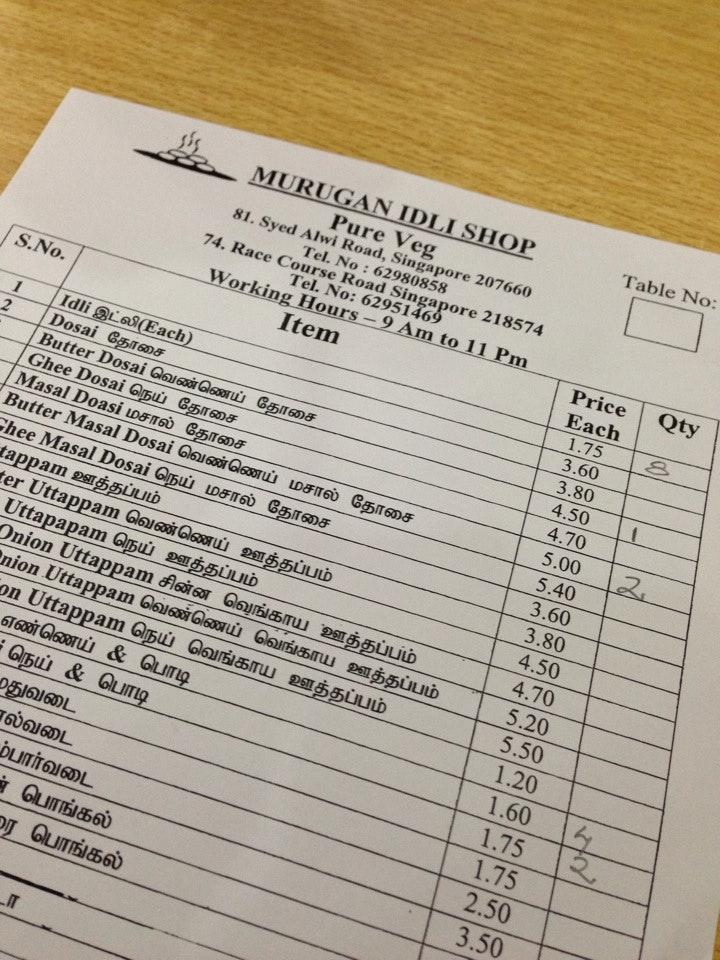 MURUGAN IDLI SHOP
Pure Veg
81. Syed Alwi Road, Singapore 207660
Tel. No : 62980858
74. Race Course Road Singapore 218574
Tel. No: 62951469
Working Hours – 9 Am to 11 Pm
Table No:
S.No. Item Price Each Qty
1 Idli இட்லி(Each) 1.75 8
2 Dosai தோசை 3.60
Butter Dosai வெண்ணெய் தோசை 3.80
Ghee Dosai நெய் தோசை 4.50 1
Masal Doasi மசால் தோசை 4.70
Butter Masal Dosai வெண்ணெய் மசால் தோசை 5.00 2
Ghee Masal Dosai நெய் மசால் தோசை 5.40
ttappam ஊத்தப்பம் 3.60
ter Uttappam வெண்ணெய் ஊத்தப்பம் 3.80
Uttapapam நெய் ஊத்தப்பம் 4.50
Onion Uttappam சின்ன வெங்காய ஊத்தப்பம் 4.70
Onion Uttappam வெண்ணெய் வெங்காய ஊத்தப்பம் 5.20
on Uttappam நெய் வெங்காய ஊத்தப்பம் 5.50
எண்ணெய் & பொடி 1.20
நெய் & பொடி 1.60 4
துவடை 1.75 2
ல்வடை 1.75
ம்பார்வடை 2.50
பொங்கல் 3.50
பொங்கல்